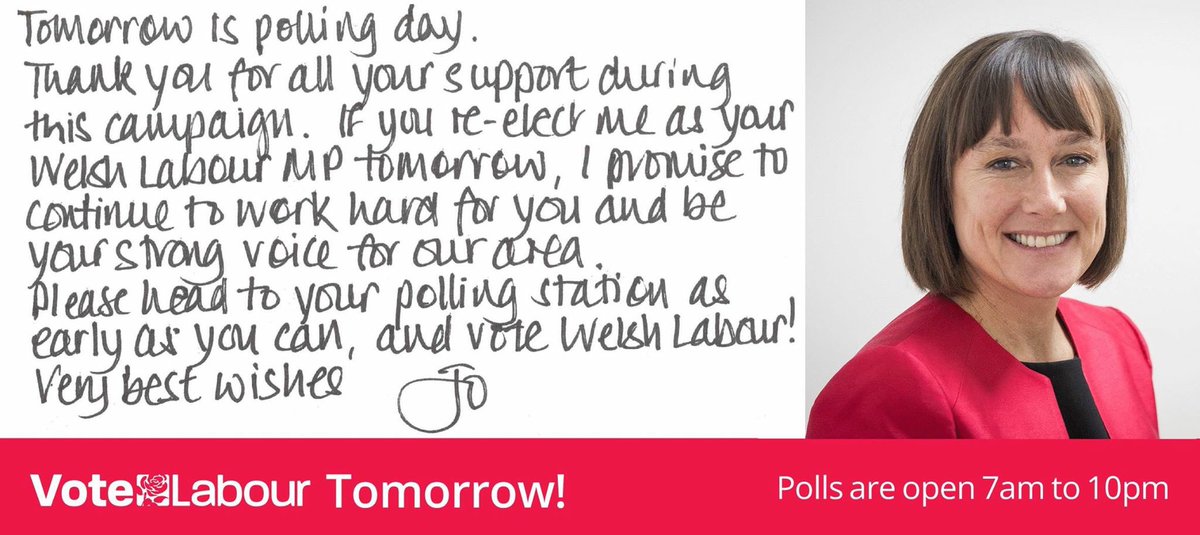 Tomorrow is polling day.
Thank you for all your support during
this campaign. If you re-elect me as your
Welsh Labour MP tomorrow, I promise to
continue to work hard for you and be
your strong voice for our area.
Please head to your polling station as
early as you can, and vote Welsh Labour!
Very best wishes Jo
Vote Labour Tomorrow!
Polls are open 7am to 10pm